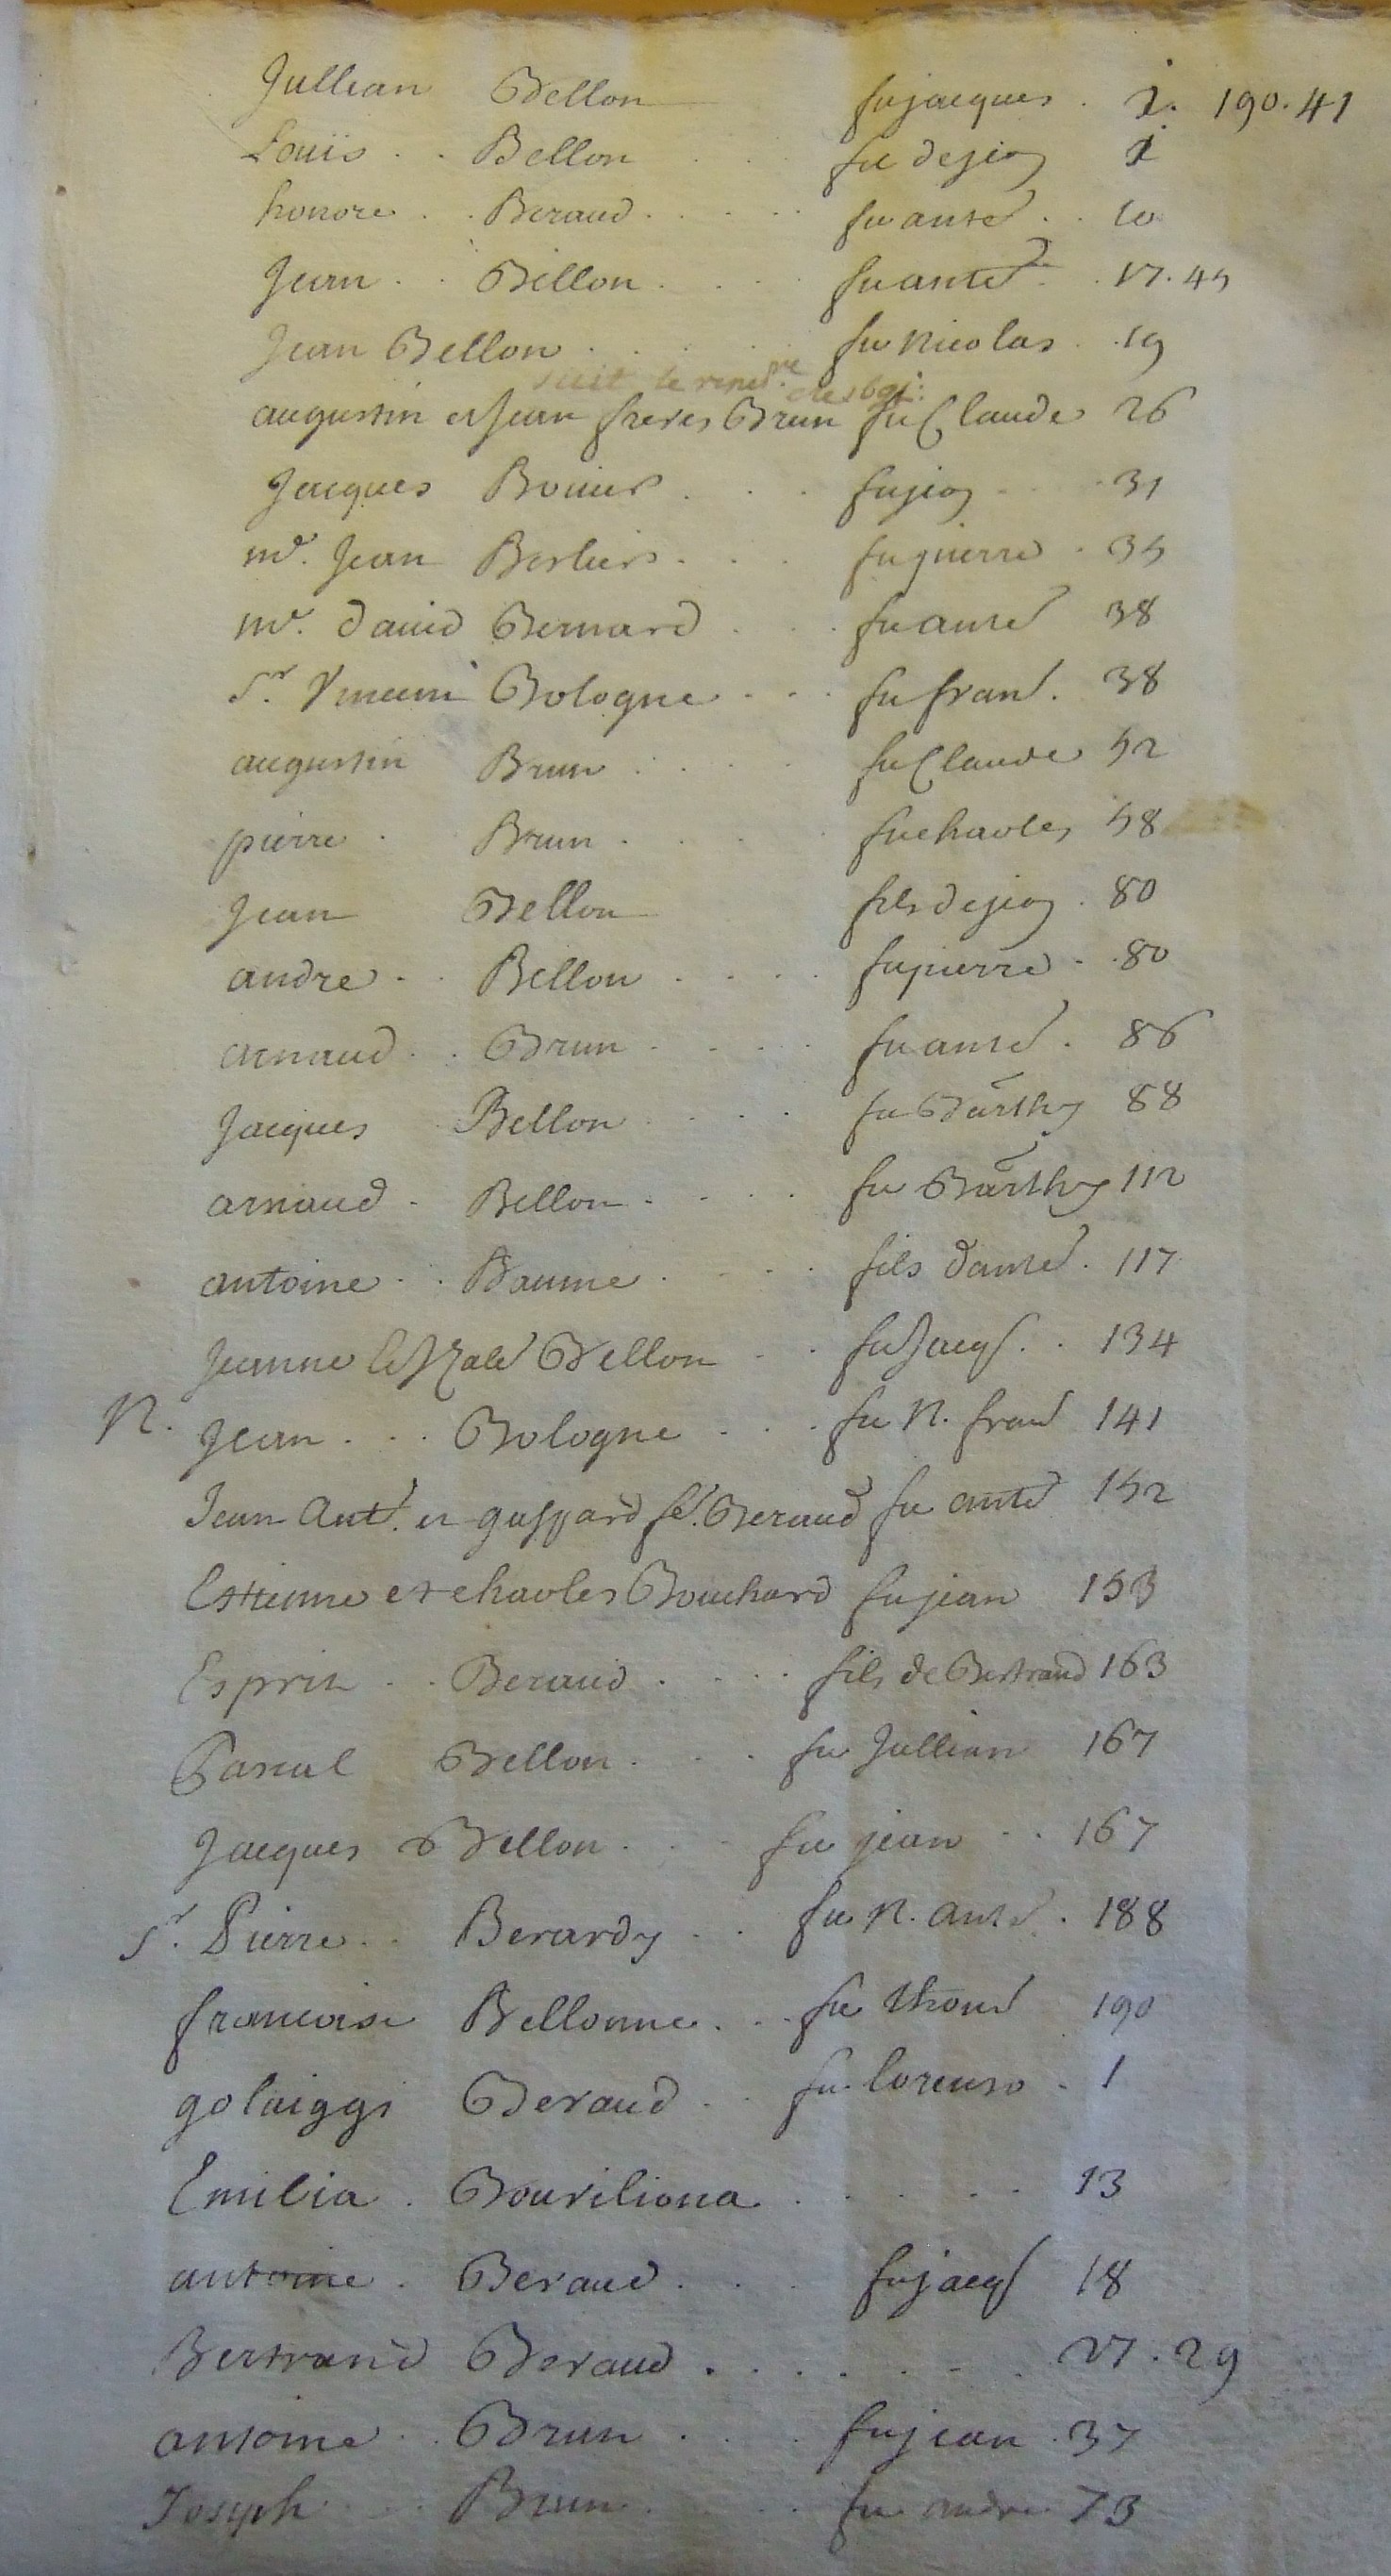 Jullian Bellon fu jacques . 1. 190. 41
Louis . . Bellon . . fu de jeoz 1
honore . . Beraud . . . . fu anté . . 10
Jean . . Bellon . . . fu anté . . 17. 45
Jean Bellon . . . . fu Nicolas . . 19
suit le
augustin et Jean freres Brun fu Claude 26
Jacques Bouier . . . fu jeoz . . 31
me. Jean Berlier . . . fu pierre . 35
me. david Bernard . . . fu anté 38
Sr. Vincent Bologne . . . fu frané. 38
augustin Brun . . . . fu Claude 52
pierre . Brun . . . fu charles 58
Jean Bellon fils de jeoz . 80
andre . . Bellon . . . . fu pierre . . 80
arnaud . . Brun . . . . fu anté . 86
Jacques . Bellon . . . . fu Barthy 88
arnaud . Bellon . . . . fu Barthy 112
antoine . . Baume . . . . fils d'anté . 117
Jeanne Bellon . . fu Jacqs . . 134
N. Jean . . . Bologne . . . fu N. frané 141
Jean Anté. et gaspard fs. Beraud fu anté 152
Estienne et charles Bouchard fu jean 153
Esprit . . Beraud . . . . fils de Bertrand 163
Pascal Bellon . . . fu Jullian 167
Jacques Bellon . . . fu jean . . 167
Sr. Pierre . . Berardy . . fu N. anté . 188
francoise Bellonne . . . fu thomé 190
golaiggi Beraud . . fu lorenso . 1
Emilia . Bouriliona . . . . . 13
antoine . Beraud . . . fu jacqs 18
Bertrand Beraud . . . . . . . 27. 29
antoine . . Brun . . . fu jean . 37
Joseph . . Brun . . . fu andre 73